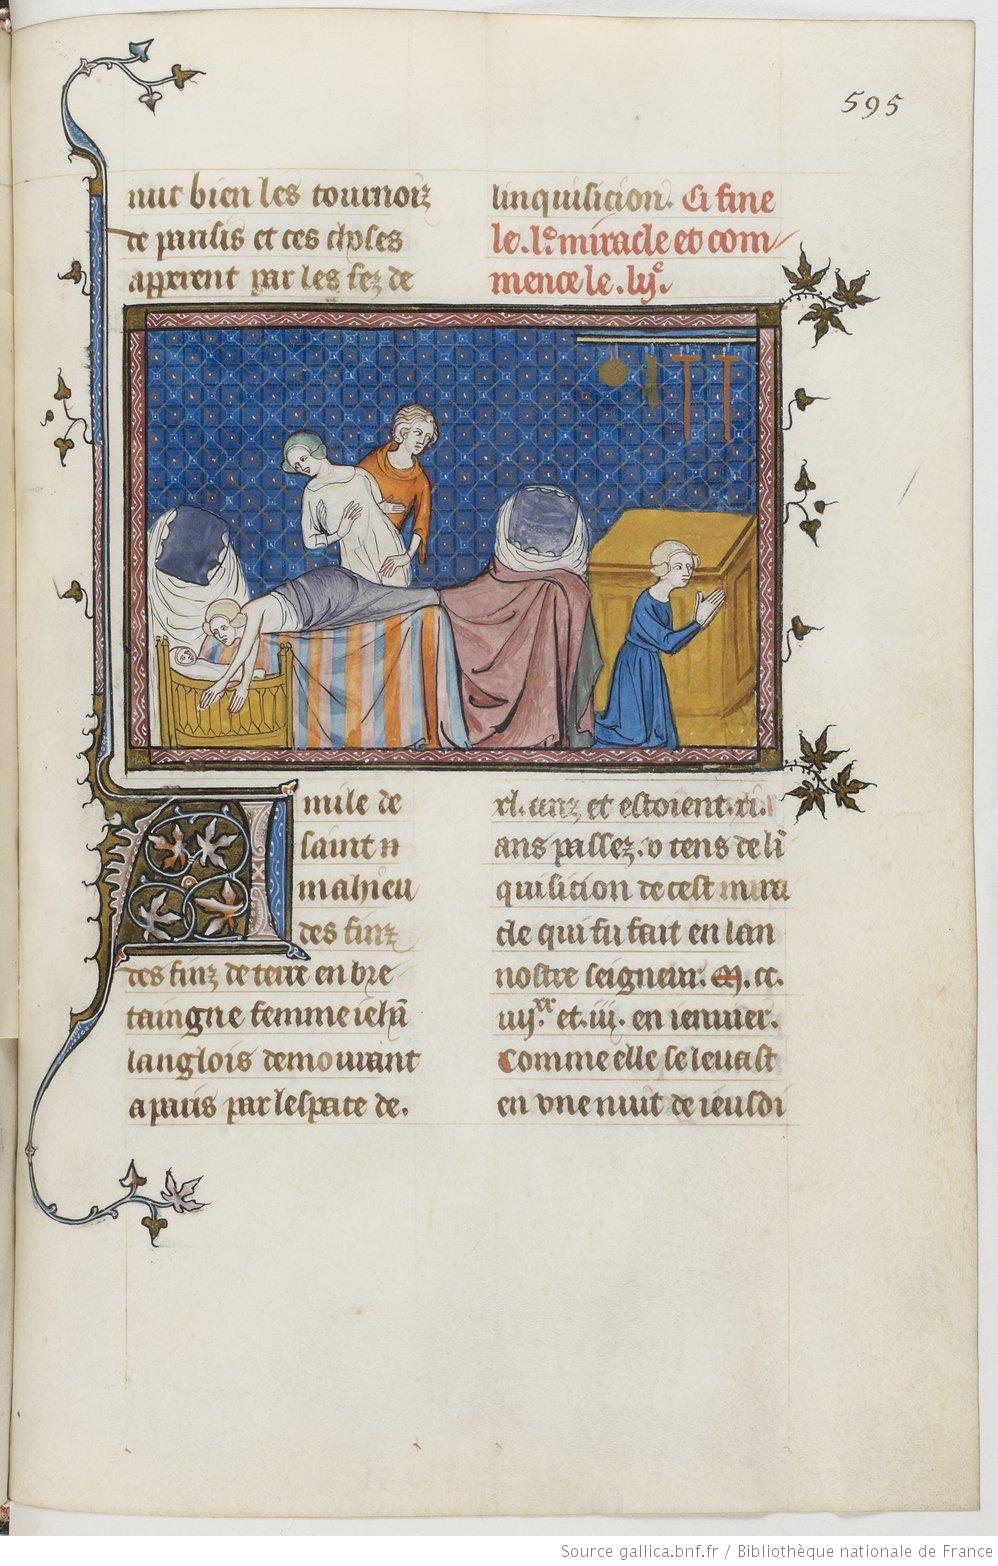 595
nut bien les tournoiz
de parisis et ces choses
apperent par les fez de
linquisicion. Ci fine
le .l.e miracle et com
mence le .lj.e
Amile de
saint
mahieu
des finz
des finz de terre en bre
taingne femme ieh̄
langlois demourant
a paris par lespace de.
xl. anz et estoient .xi.
ans passez. v tens de li
quisicion de cest mira
cle qui fu fait en lan
nostre seigneur. M. cc.
iiij.xx et .iij. en ienuier.
Comme elle se leuast
en vne nuit de ieusdi
Source gallica.bnf.fr / Bibliothèque nationale de France